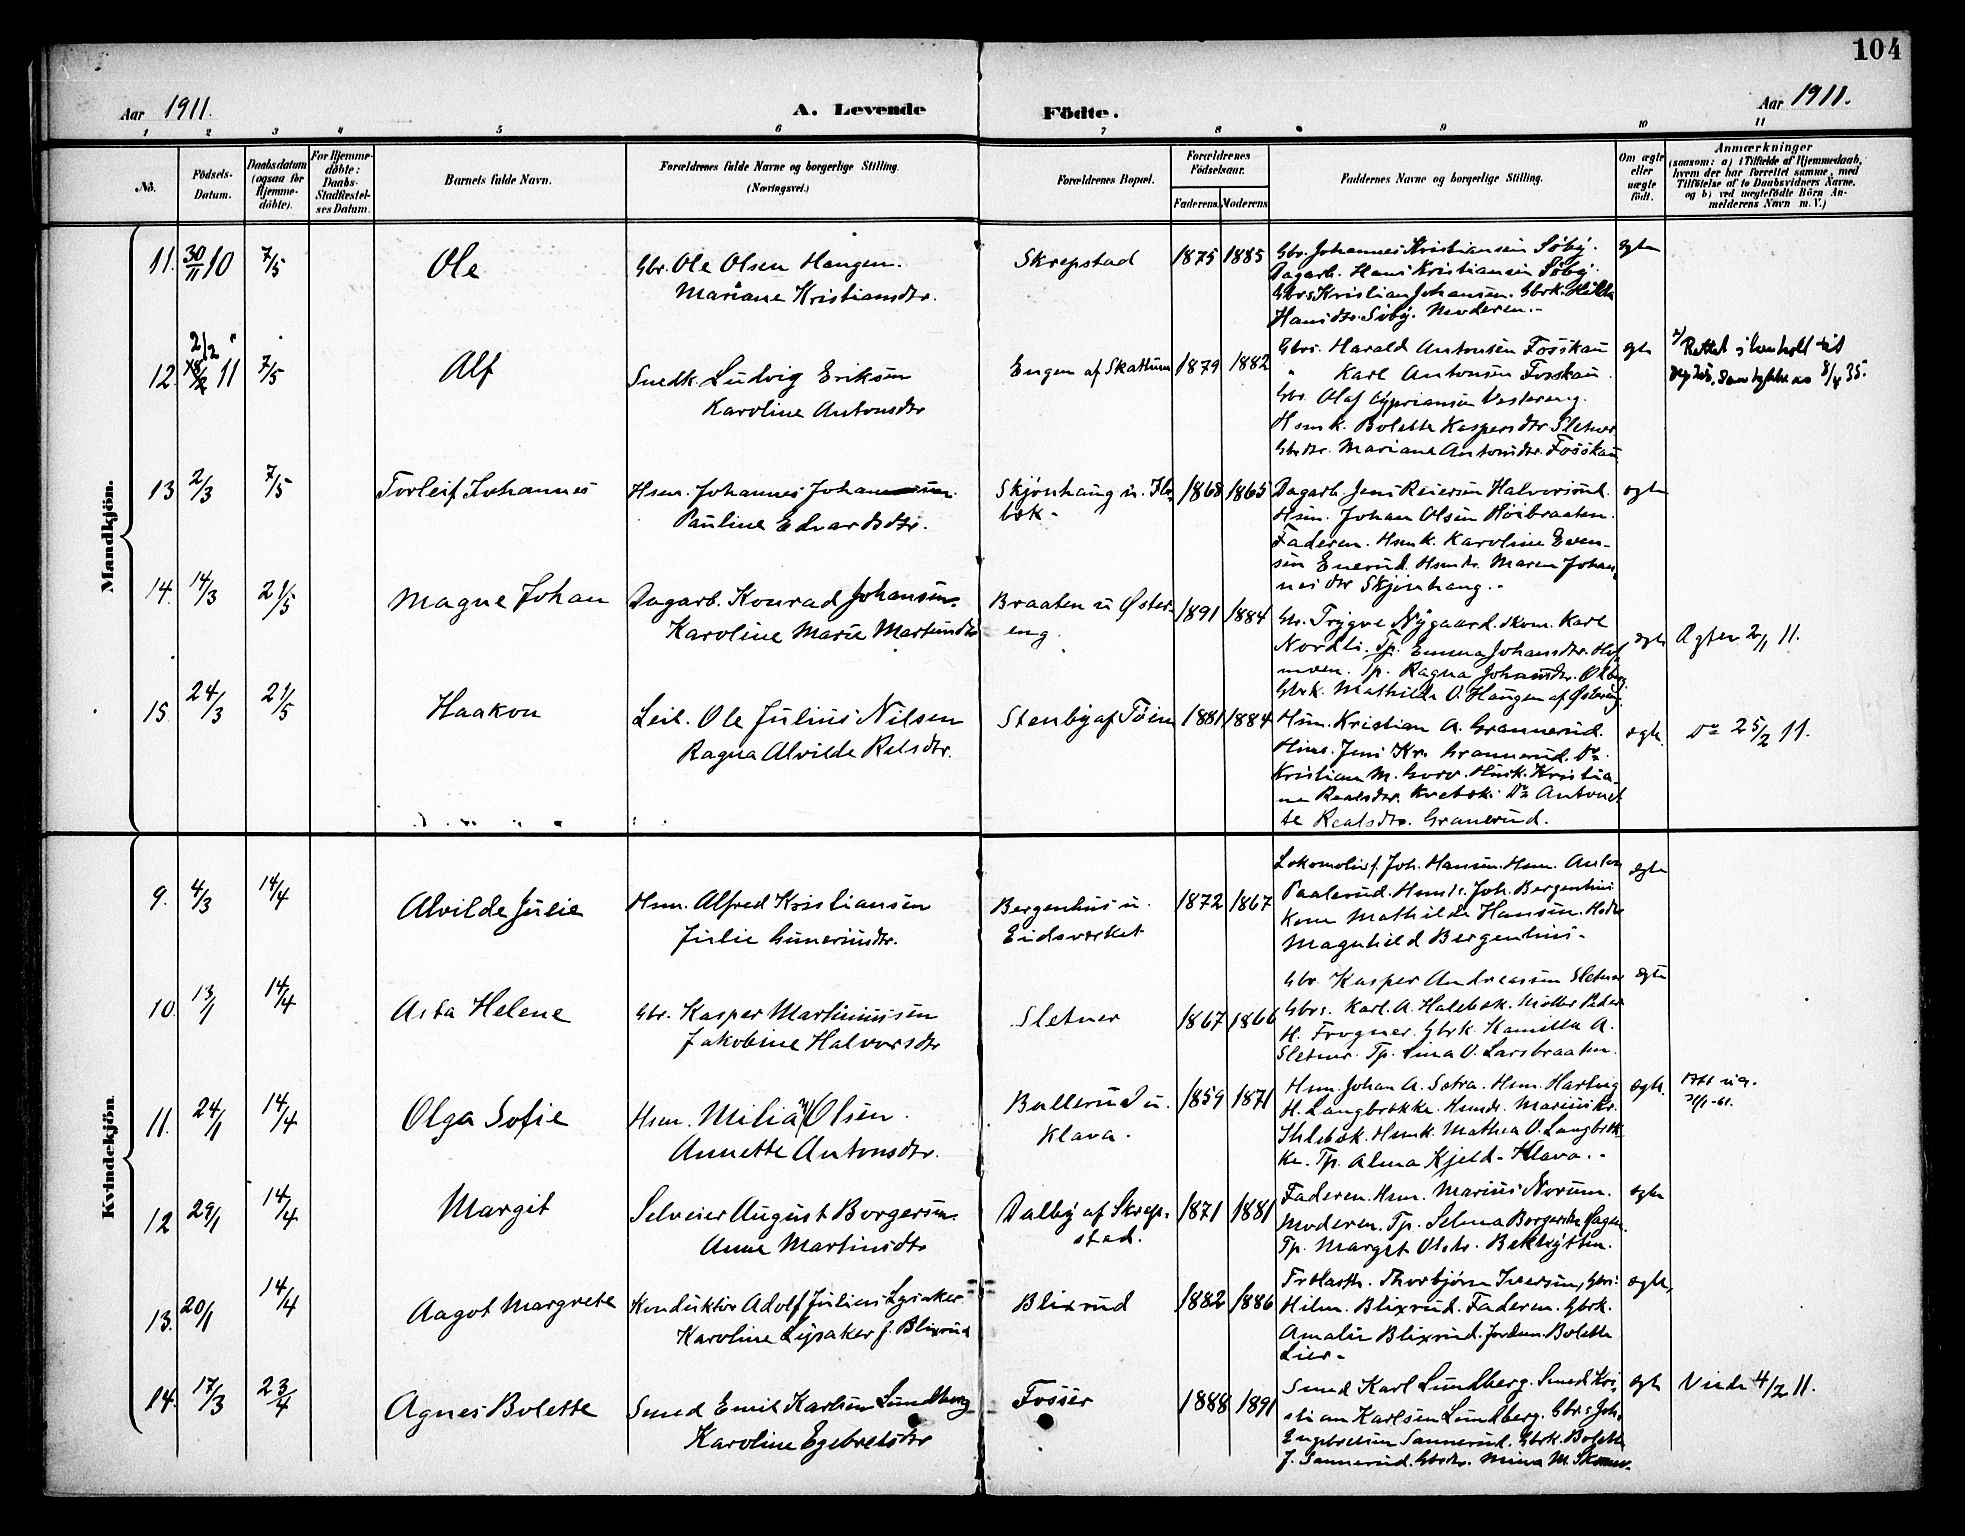 104
Aar 1911.
A. Levende
Födte.
Aar 1911.
1 2 3 4 5 6 7 8 9 10 11
No.
Födsels-
Datum.
Daabsdatum
(ogsaa for
Hjemme-
döbte).
For Hjemme-
döbte:
Daabs-
Stadfæstel-
ses Datum.
Barnets fulde Navn.
Forældrenes fulde Navne og borgerlige Stilling.
(Næringsvei.)
Forældrenes Bopæl.
Forældrenes
Födselsaar.
Faderens. Moderens.
Faddernes Navne og borgerlige Stilling.
Om ægte
eller
uægte
födt.
Anmærkninger
(saasom: a) i Tilfælde af Hjemmedaab,
hvem der har forrettet samme, med
Tilföielse af to Daabsvidners Navne,
og b) ved uægtefödte Börn An-
melderens Navn m. V.)
Mandkjön.
11. 30/11 10 7/5 Ole
Gbr. Ole Olsen Haugen.
Mariane Kristiansdtr.
Skrepstad 1875 1885
Gbr. Johannes Kristiansen Söby.
Dagarb. Hans Kristiansen Söby.
Gbrs. Kristian Johansen. Gbrk. Hilda
Hansdtr. Söby. Moderen.-
egte
12 2/2 11 7/5 Alf
Snedk. Ludvig Eriksen
Karoline Antonsdtr
Engen af Skattum 1879 1882
Gbrs. Harald Antonsen Fosskau
" Karl Antonsen Fosskau.
Gbs. Olaf Cyprianson Vestereng.
Hsmk. Bolette Kaspersdtr Sletner
Gbrdtr. Mariane Antonsdtr. Fosskau
egte
Rettet i henhold til
8/4 35.
13 2/3 7/5 Torleif Johannes
Hsm. Johannes Johannessen.
Pauline Edvardsdtr.
Skjönhaug u.
bæk- 1868 1865
Dagarb. Jens Reiersen Halvorsrud.
Hsm. Johan Olsen Höibraaten.
Faderen. Hsmk. Karoline Even-
sen Enerud. Hsmdtr. Maren Johan-
nesdtr Skjönhaug.-
egte
14. 14/3 21/5 Magne Johan
Dagarb. Konrad Johansen.
Karoline Marie Martinsdtr
Braaten u Øster-
eng. 1891 1884
Gbs. Trygve Nygaard. Skom. Karl
Nordli. Tp. Emma Johansdtr. Hof-
moen. Tp. Ragna Johansdtr. Olberg
Gbrk. Mathilde O. Haugen af Østereng.
egte Agter 2/1 11.
15. 24/3 21/5 Haakon
Leil. Ole Julius Nilsen
Ragna Alvilde Relsdtr.
Stenby af Töien 1881 1884
Hsm. Kristian A. Grannerud.
Hsms. Jens Kr. Grannerud. Do
Kristian M. Horv. Hsmk. Kristia-
ne Realsdtr. Krebæk. Do Antonet-
te Realsdtr. Granerud.
egte. Do 25/2 11.
Kvindekjön.
9. 4/3 14/4 Alvilde Julie
Hsm. Alfred Kristiansen
Julie Guneriusdtr.
Bergenhus u.
Eidsverket 1872 1867
Lokomotivf. Joh. Hansen. Hsm. Anton
Paalerud. Hsmk. Joh. Bergenhus
Kone Mathilde Hansen.
Magnhild Bergenhus-
egte
10. 13/1 14/4 Asta Helene
Gbr. Kasper Martiniussen
Jakobine Halvorsdtr
Sletner 1867 1866
Gbr. Kasper Andreassen Sletner
Gbrs. Karl. A. Halebæk. Möller Peder
H. Frogner. Gbrk Kamilla A.
Sletner. Tp. Lina O. Larsbraaten.
egte
11. 24/1 14/4 Olga Sofie
Hsm. Milian Olsen.
Annette Antonsdtr.
Bullerud u.
Klava. 1859 1871
Hsm. Johan A. Sætra. Hsm. Hartvig
H. Langbrække. Hsmds. Marius Kr.
Ihlebæk. Hsmk. Mathea O. Langbræk-
ke. Tp. Alma Kjeld- Klava.-
egte.
12 29/1 14/4 Margit
Selveier August Borgersen.
Anne Martinsdtr
Dalby af Skrep-
stad. 1871 1881
Faderen. Hsm. Marius Norum.
Moderen. Tp. Selma Borgersdtr Hagen.
Tp. Margit Olsdtr. Bekkhytten.
egte
13. 20/1 14/4 Aagot Margrete
Konduktör Adolf Julius Lysaker
Karoline Lysaker f. Blixrud
Blixrud 1882 1886
Thorbjörn Iversen, Gbrs.
Hilm. Blixrud. Faderen. Gbrk.
Amalie Blixrud. Jordem. Bolette
Lier-
egte,
14. 17/3 23/4 Agnes Bolette
Smed Emil Karlsen Lundberg
Karoline Egebretsdtr
Fosser 1888 1891
Smed Karl Lundberg. Smed Kri-
stian Karlsen Lundberg. Gbrs. Joh.
Engebretsen Sannerud. Gbrk. Bolette
J. Sannerud. Gbrdtr. Mina M.
egte Viede 4/2 11.